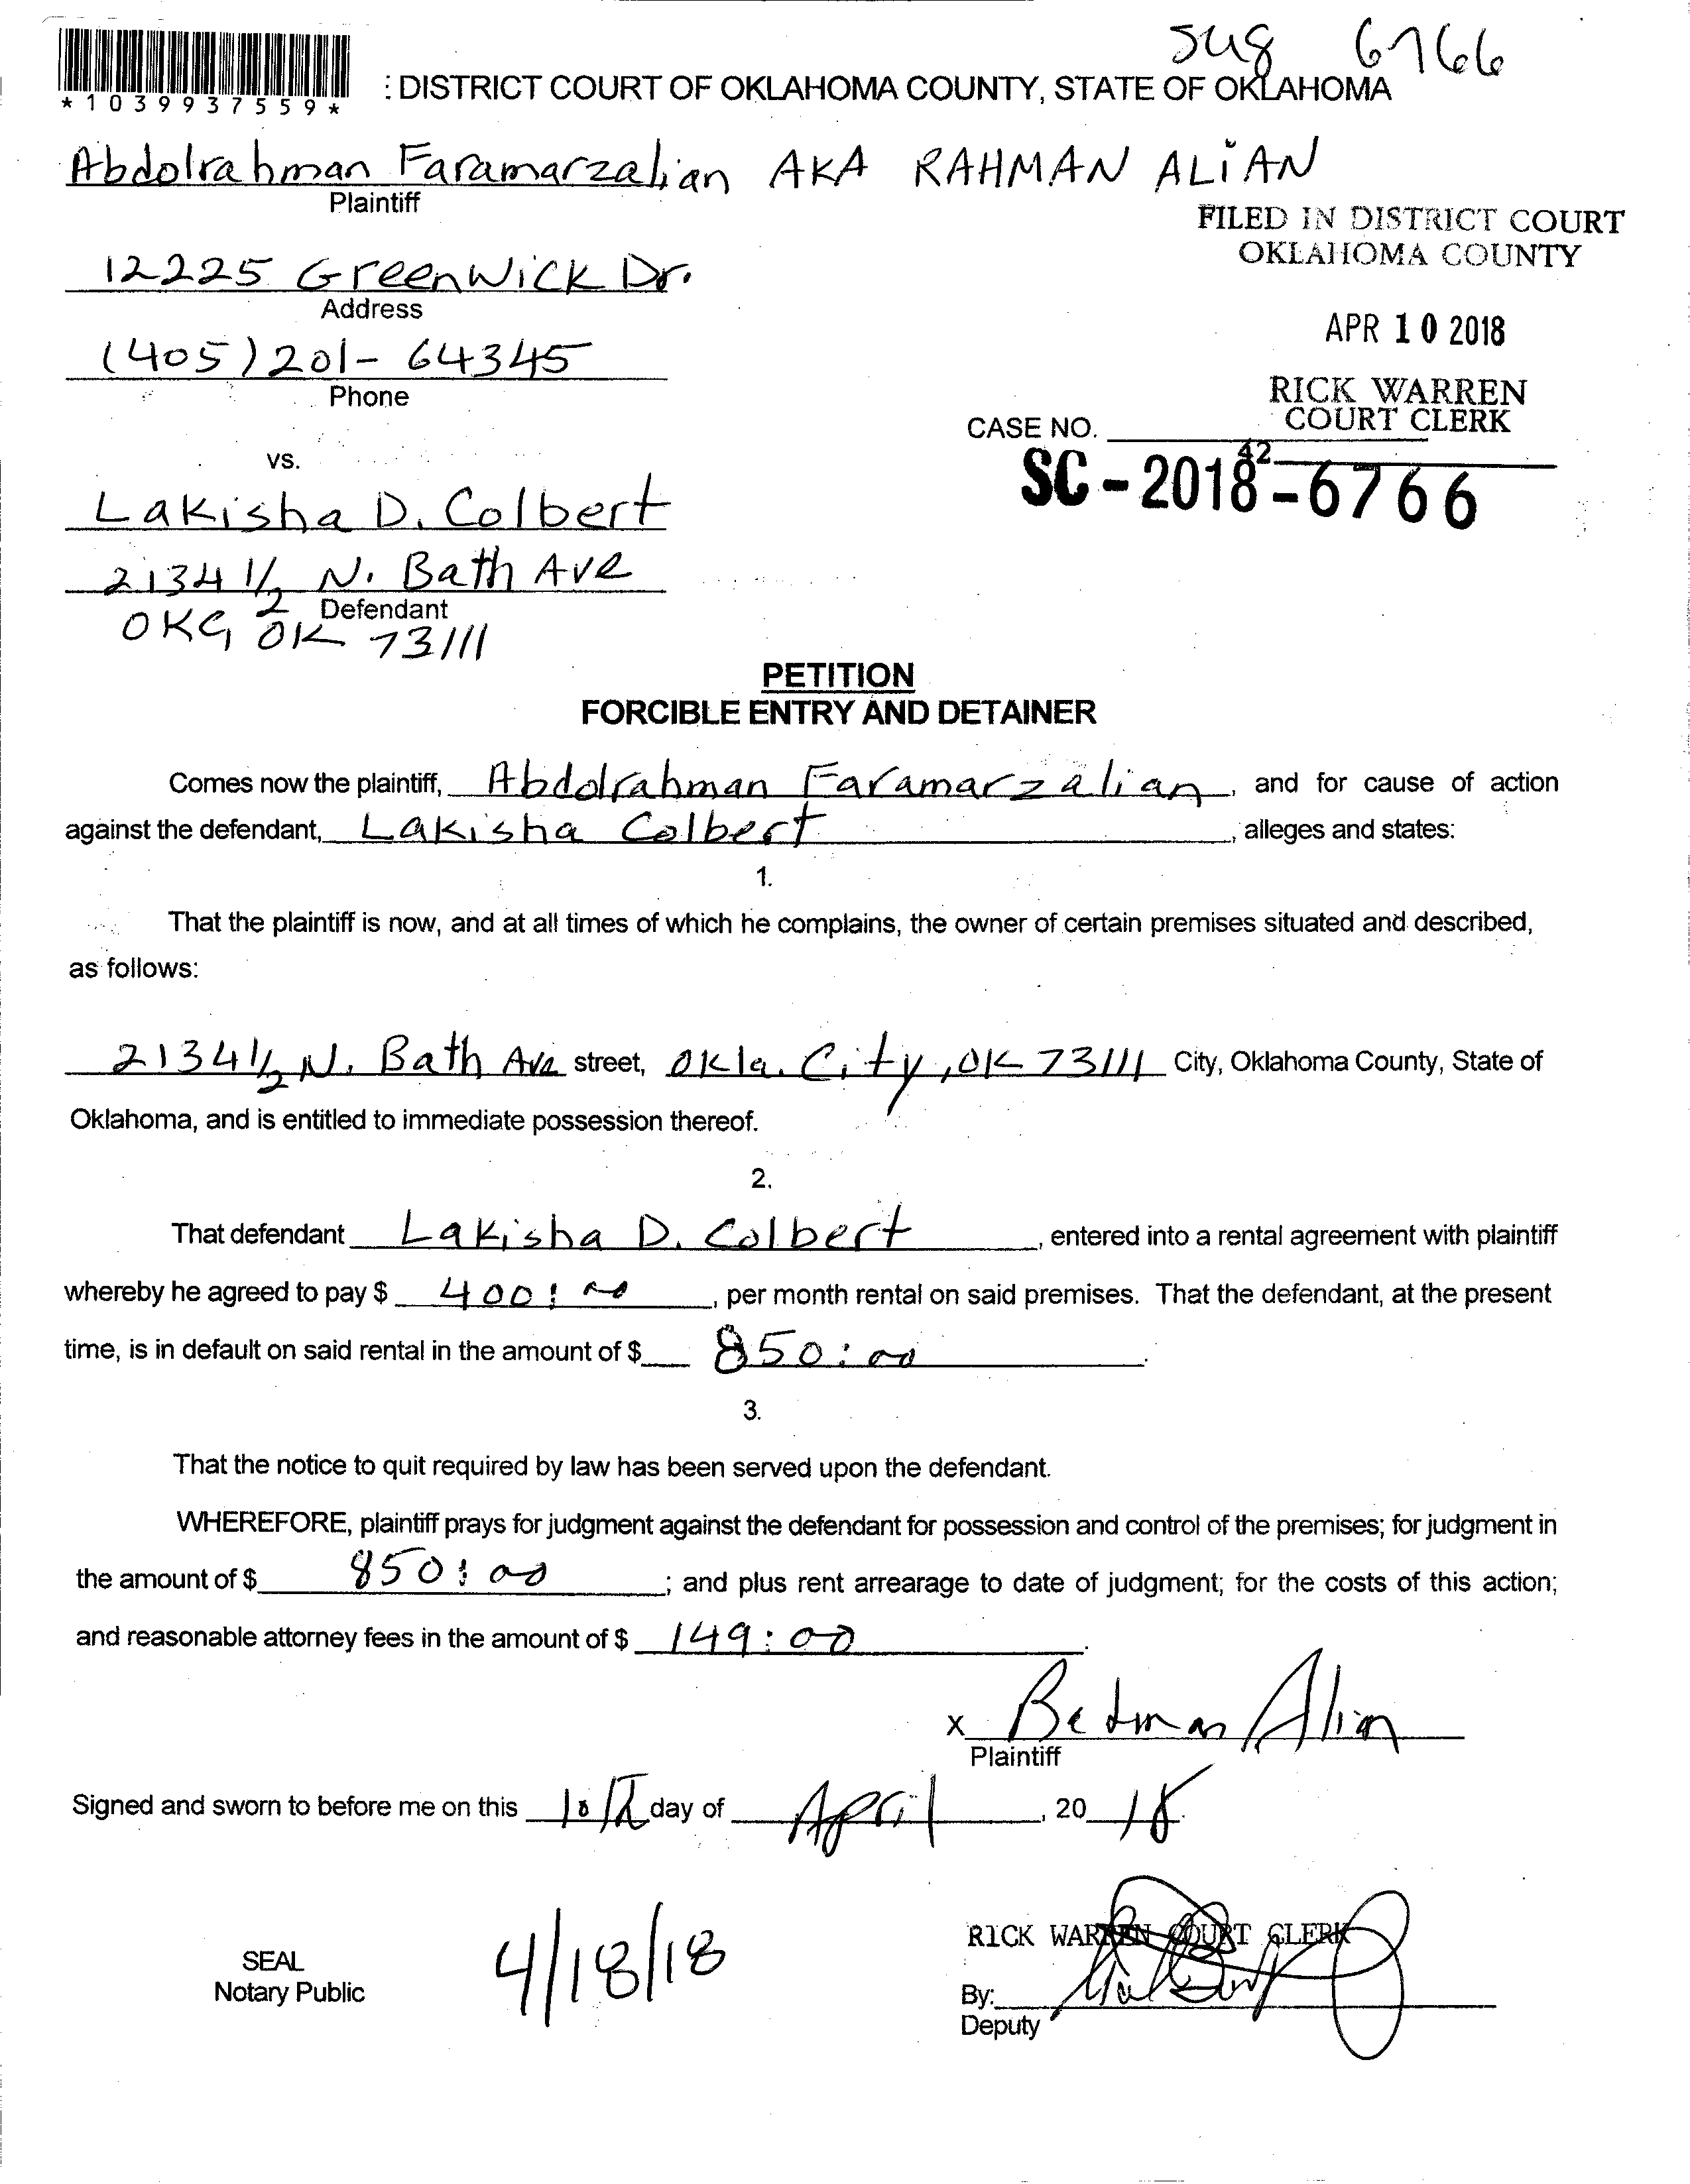 sug 6766
*1039937559*
: DISTRICT COURT OF OKLAHOMA COUNTY, STATE OF OKLAHOMA
Abdolrahman Faramarzalian AKA RAHMAN ALiAN
Plaintiff
FILED IN DISTRICT COURT
OKLAHOMA COUNTY
12225 GreenWick Dr.
Address
APR 10 2018
(405) 201- 64345
Phone
RICK WARREN
COURT CLERK
CASE NO.
42
SC - 2018 - 6766
vs.
Lakisha D. Colbert
2134 1/2 N. Bath Ave
Defendant
OKC, OK 73111
PETITION
FORCIBLE ENTRY AND DETAINER
Comes now the plaintiff, Abdolrahman Faramarzalian, and for cause of action
against the defendant, Lakisha Colbert, alleges and states:
1.
That the plaintiff is now, and at all times of which he complains, the owner of certain premises situated and described,
as follows:
2134 1/2 N. Bath Ave street, Okla. City, OK 73111 City, Oklahoma County, State of
Oklahoma, and is entitled to immediate possession thereof.
2.
That defendant Lakisha D. Colbert, entered into a rental agreement with plaintiff
whereby he agreed to pay $ 400:00, per month rental on said premises. That the defendant, at the present
time, is in default on said rental in the amount of $ 850:00.
3.
That the notice to quit required by law has been served upon the defendant.
WHEREFORE, plaintiff prays for judgment against the defendant for possession and control of the premises; for judgment in
the amount of $ 850:00; and plus rent arrearage to date of judgment; for the costs of this action;
and reasonable attorney fees in the amount of $ 149:00.
X Alian
Plaintiff
Signed and sworn to before me on this 10th day of April, 20 18.
SEAL
Notary Public
4/18/18
RICK WARREN COURT CLERK
By:
Deputy